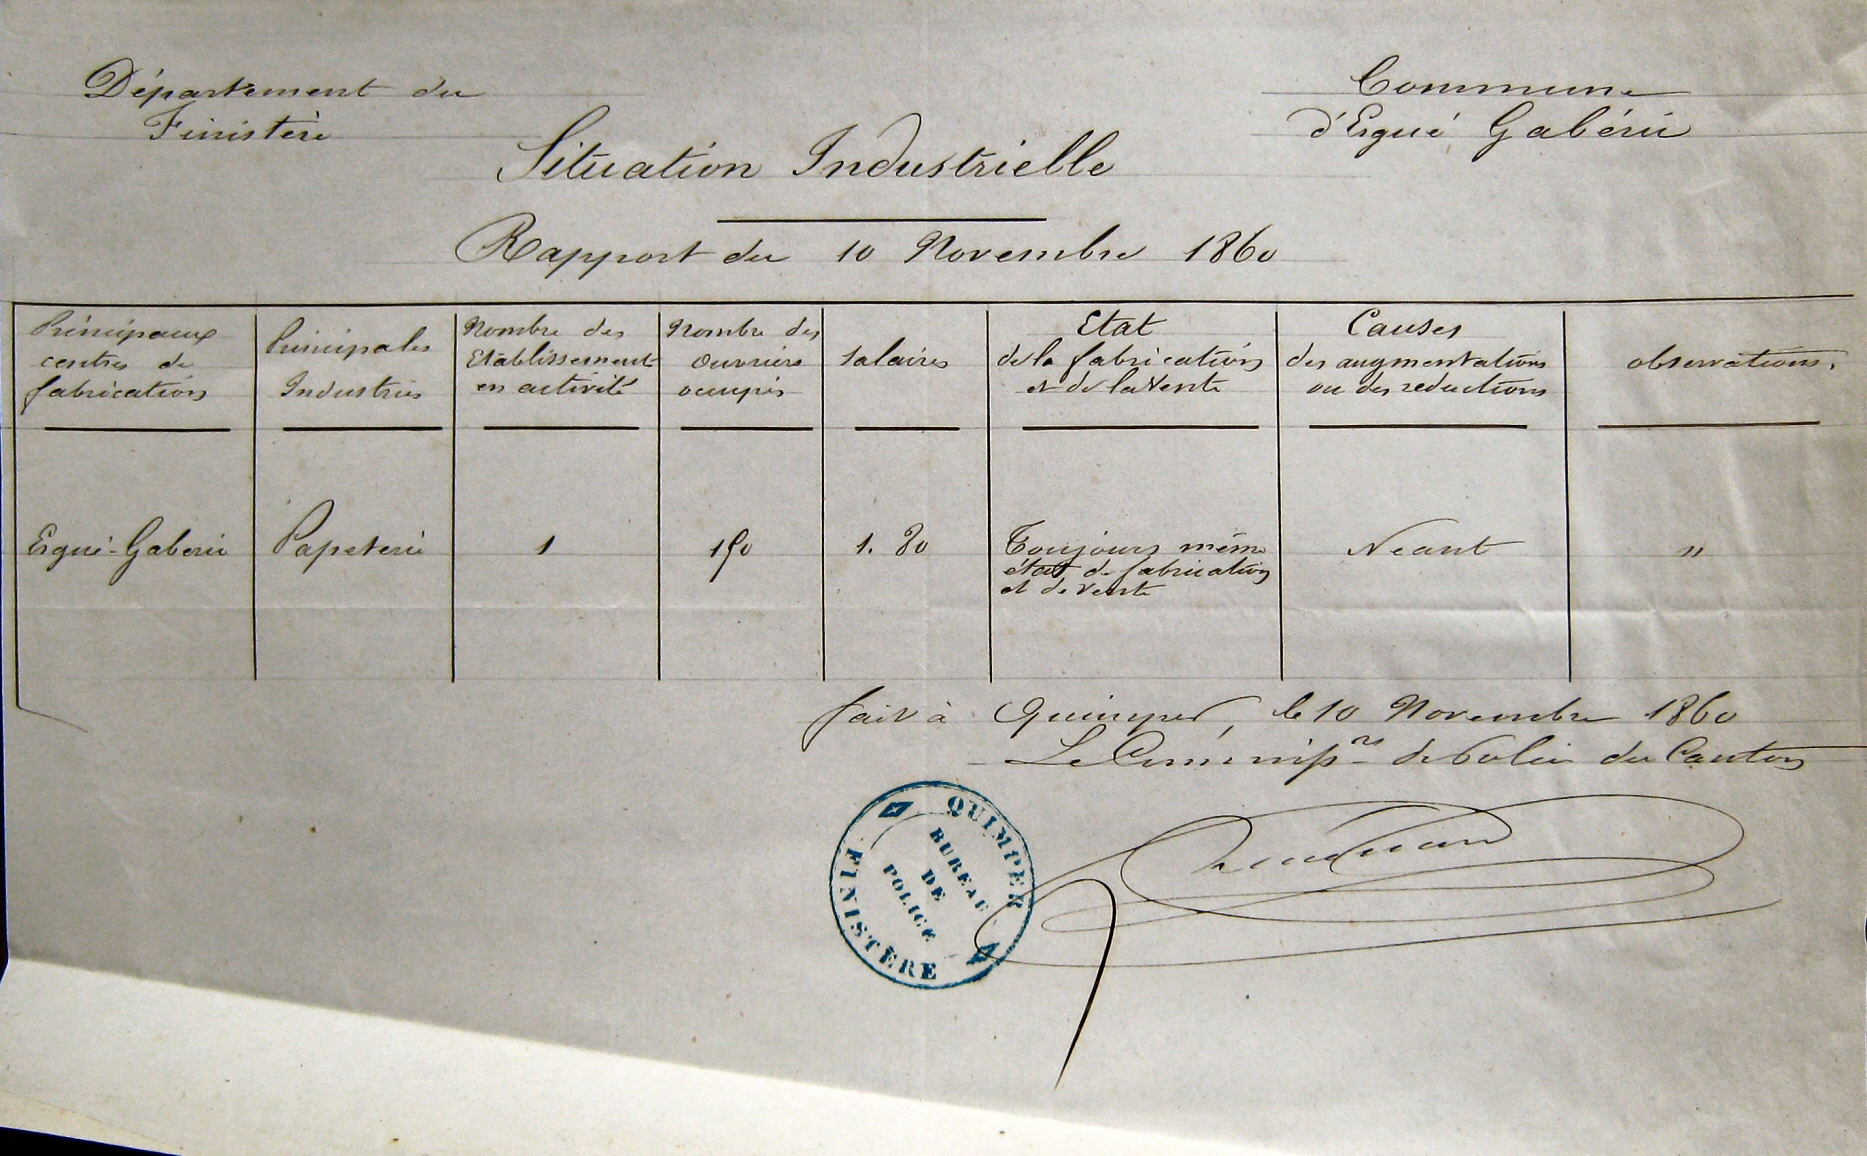 Département du
Finistère
Commune
d'Ergué Gabéric
Situation Industrielle
Rapport du 10 Novembre 1860
Principaux
centres de
fabrication
Principales
Industries
Nombre des
Etablissement
en activité
Nombre des
ouvriers
occupés
Salaires
Etat
de la fabrication
et de la Vente
Causes
des augmentations
ou des réductions
observations.
Ergué-Gaberic
Papeterie
1
150
1. 80
Toujours même
état de fabrication
et de vente
Neant
"
fait à Quimper, le 10 Novembre 1860
Le Commissre de Police du Canton
QUIMPER
BUREAU
DE
POLICE
FINISTÈRE